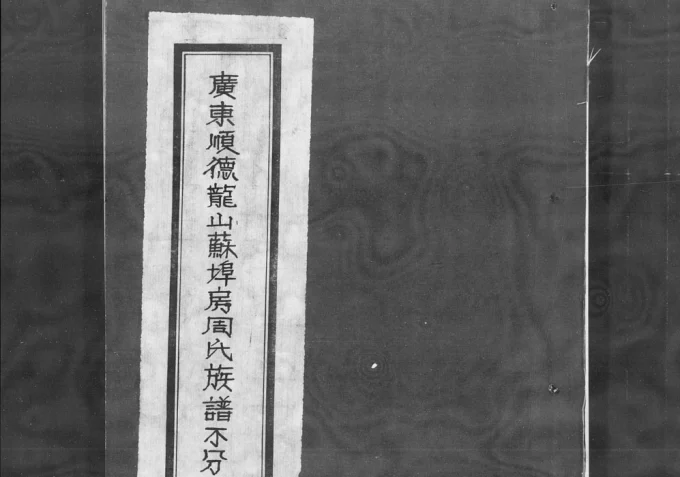 廣東順德龍山蘇埠房周氏族譜不分